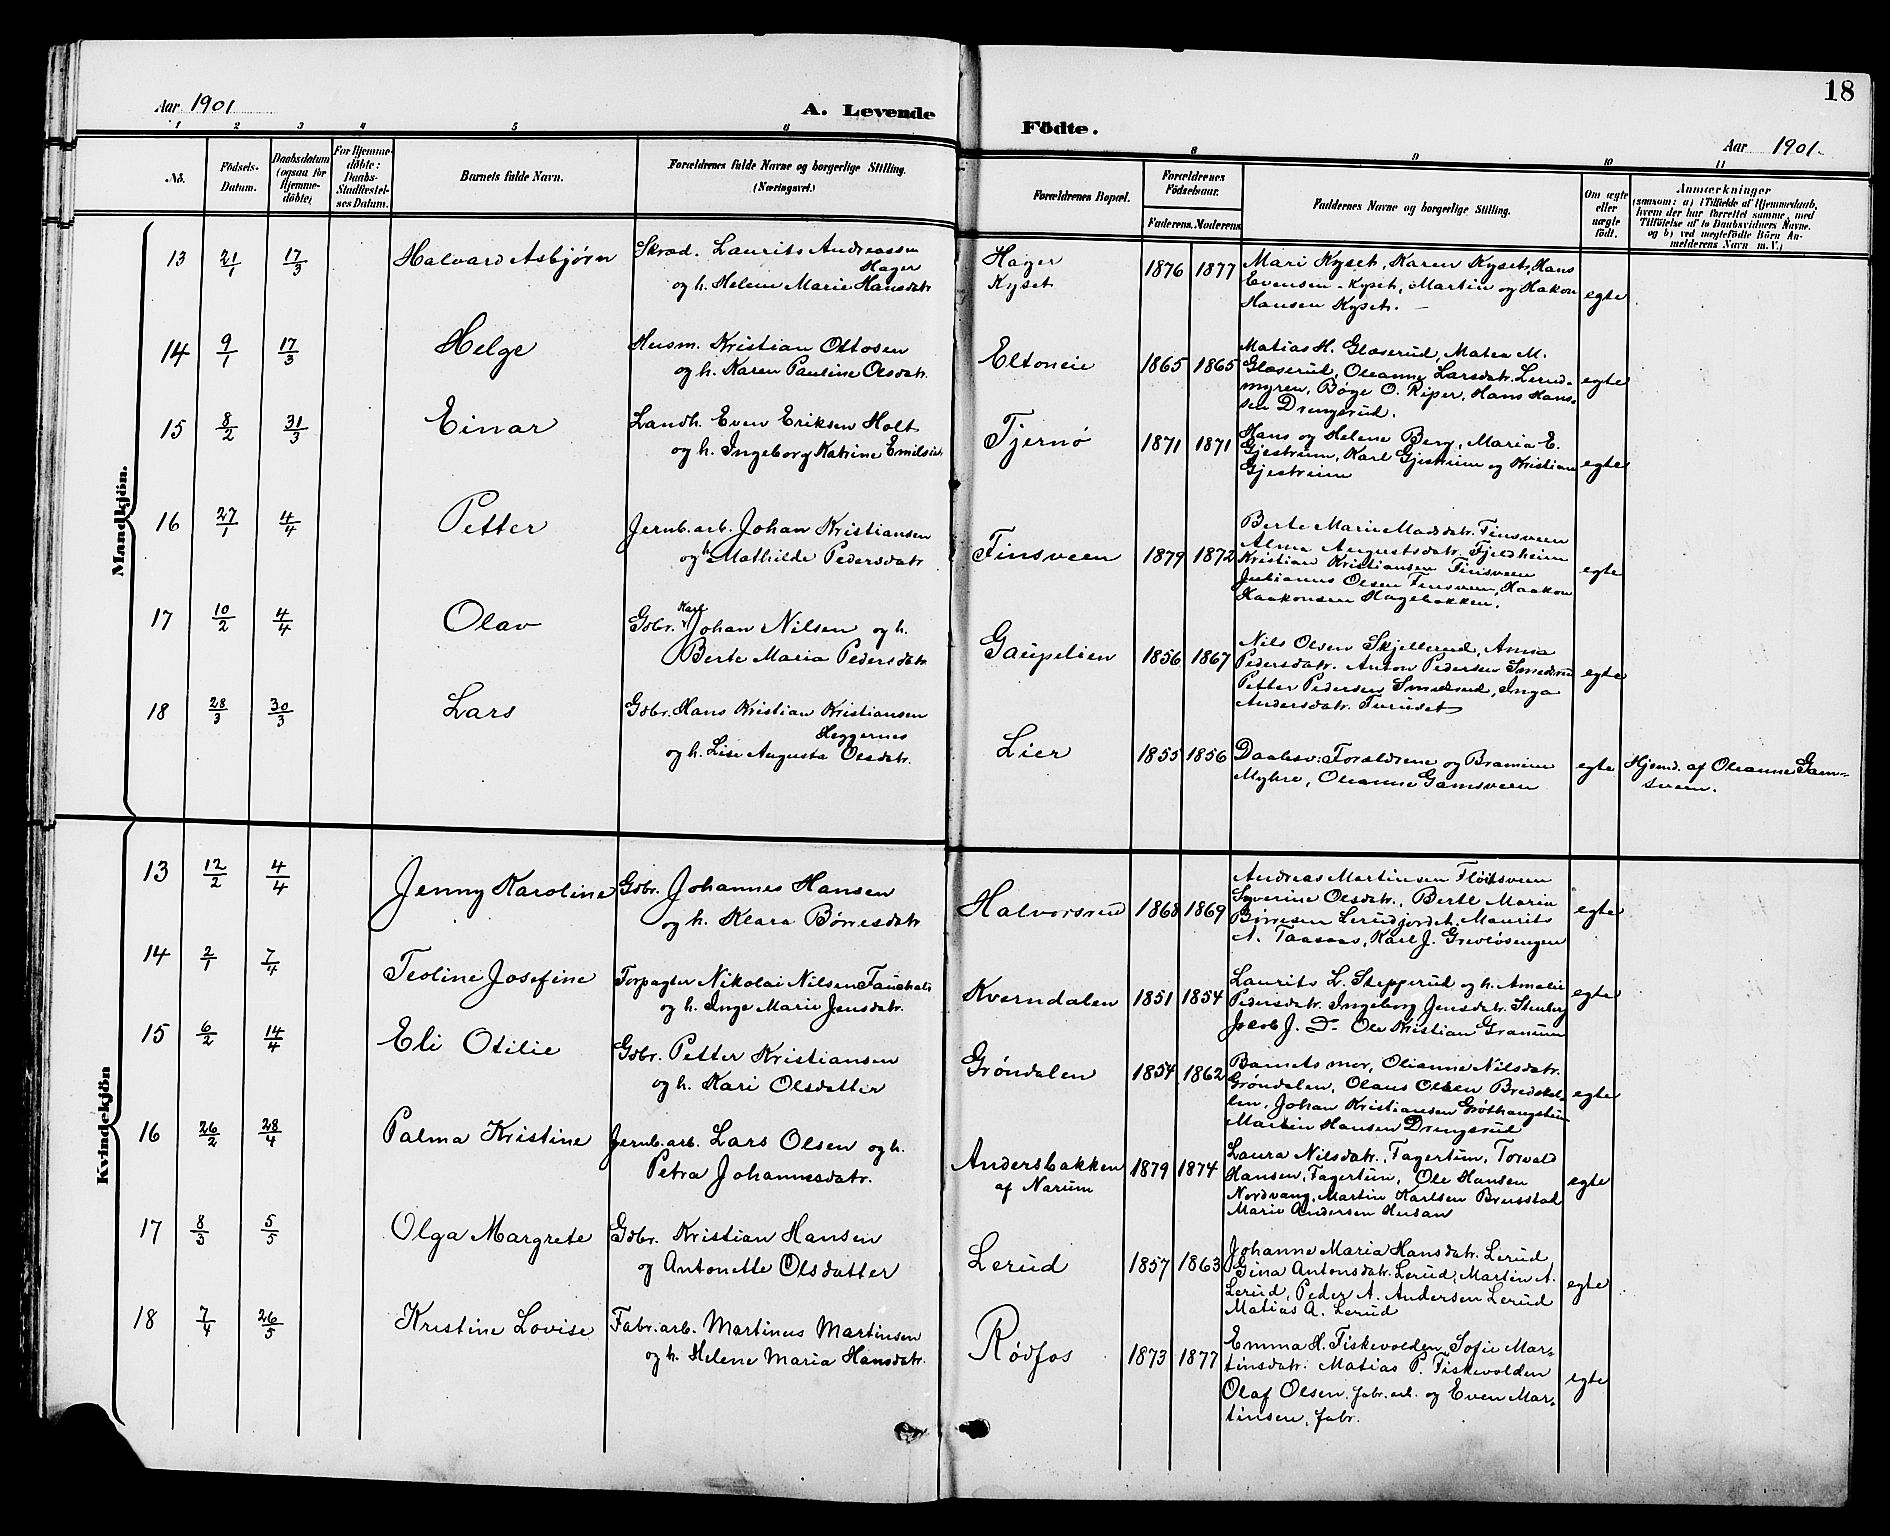 18
Aar 1901
A. Levende
Födte.
Aar 1901.
1 2 3 4 5 6 8 9 10 11
No.
Födsels-
Datum.
Daabsdatum
(ogsaa for
Hjemme-
döbte)
For Hjemme-
döbte:
Daabs-
Stadfestel-
ses Datum.
Barnets fulde Navn.
Forældrenes fulde Navne og borgerlige Stilling.
(Næringsvei.)
Forældrenes Bopæl.
Forældrenes
Födselsaar.
Faderens. Moderens.
Faddernes Navne og borgerlige Stilling.
Om ægte
eller
uægte
födt.
Anmærkninger
(saasom: a) i Tilfælde af Hjemmedaab,
hvem der har forrettet samme, med
Tilföielse af to Daabsvidners Navne.
og b) ved uægtefödte Börn An-
melderens Navn m. V.)
Mandkjön.
13 21/1 17/3 Halvard Asbjørn
Skræd. Laurits Andreassen
Hager
og h. Helene Marie Hansdatr.
Hager
Kyset
1876 1877
Mari Kyset, Karen Kyset, Hans
Evensen Kyset, Martin og Hakon
Hansen Kyset.
egte
14 9/1 17/3 Helge
Husm. Kristian Ottosen
og h. Karen Pauline Olsdatr.
Eltoneie
1865 1865
Matias H. Glæserud, Matea M.
Glæserud, Oleanne Larsdatr. Lerud-
myren, Bøge O. Riper, Hans Han-
sen Drengsrud.
egte
15 8/2 31/3 Einar
Landh. Even Eriksen Holt
og h. Ingeborg Katrine Emilsdr.
Tjernø
1871 1871
Hans og Helene Berg, Maria E.
Gjestrum, Karl Gjestrum og Kristian
Gjestrum
egte
16 27/1 4/4 Petter
Jernb. arb. Johan Kristiansen
og h. Mathilde Pedersdatr.
Finsveen
1879 1872
Berte Marie Madsdatr. Finsveen
Alma Augustsdatr. Fjeldheim
Kristian Kristiansen Finsveen
Julianus Olsen Finsveen, Haakon
Haakonsen Hagebakken.
egte
17 10/2 4/4 Olav
Gbr. Karl Johan Nilsen og h.
Berte Maria Pedersdatr.
Gaupelien
1856 1867
Nils Olsen Skjellerud, Anna
Pedersdatr. Anton Pedersen Smedsrud
Petter Pedersen Smedsrud, Inga
Andersdatr. Furuset
egte
18 28/3 30/3 Lars
Gbr. Hans Kristian Kristiansen
Heggernes
og h. Lise Augusta Olsdatr.
Lier
1855 1856
Daabsv: Forældrene og Bramine
Myhre, Oleanne Gamsveen
egte
Hjemd. af Oleanne Gam-
sveen.
Kvindekjön
13 12/2 4/4 Jenny Karoline
Gbr. Johannes Hansen
og h. Klara Børresdatr.
Halvorsrud
1868 1869
Andreas Martinsen Fløitsveen
Syverine Olsdatr., Berte Maria
Børresen Lerudjordet. Maurits
A. Taasaas, Karl J. Grevløsengen
egte
14 2/1 7/4 Teoline Josefine
Forpagter Nikolai Nilsen Fauchald
og h. Inge Marie Jensdatr.
Kverndalen
1851 1854
Laurits L. Stepperud og h. Amalie
Pedersdatr. Ingeborg Jensdatr. Stenberg
Jacob J. Do Ole Kristian Granum
egte
15 6/2 14/4 Eli Otilie
Gbr. Petter Kristiansen
og h. Kari Olsdatter
Grøndalen
1854 1862
Barnets mor, Olianne Nilsdatr.
Grøndalen, Olaus Olsen Bredskal-
len, Johan Kristiansen Grøthaugstuen
Martin Hansen Drengsrud
egte
16 26/2 28/4 Palma Kristine
Jernb. arb. Lars Olsen og h.
Petra Johannesdatr.
Andersbakken
af Narum
1879 1874
Laura Nilsdatr., Fagertun, Torvald
Hansen, Fagertun, Ole Hansen
Nordvang, Martin Karlsen Brusstad
Marie Andersen Husan
egte
17 8/3 5/5 Olga Margrete
Gbr. Kristian Hansen
og Antonette Olsdatter
Lerud
1857 1863
Johanne Maria Hansdatr. Lerud
Gina Antonsdatr. Lerud, Martin A.
Lerud, Peder A. Andersen Lerud
Matias A. Lerud
egte
18 7/4 26/5 Kristine Lovise
Fabr. arb. Martinus Martinsen
og h. Helene Maria Hansdatr.
Rødfos
1873 1877
Emma H. Fiskevolden, Sofie Mar-
tinsdatr. Matias P. Fiskevolden
Olaf Olsen, fabr. arb. og Even Mar-
tinsen, fabr.
egte